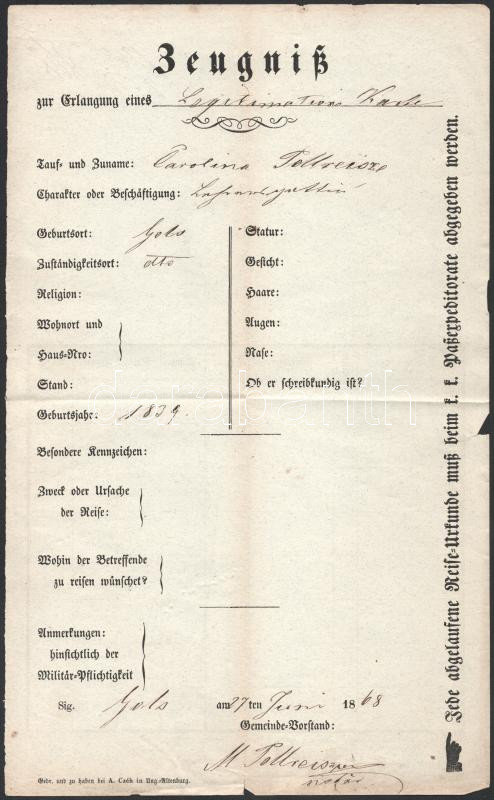 Zeugniß
zur Erlangung eines Legitimations Karte
Tauf- und Zuname: Carolina
Charakter oder Beschäftigung:
Geburtsort: Gols
Zuständigkeitsort: dto
Religion:
Wohnort und
Haus-Nro:
Stand:
Geburtsjahr: 1839.
Statur:
Gesicht:
Haare:
Augen:
Nase:
Ob er schreibkundig ist?
Besondere Kennzeichen:
Zweck oder Ursache
der Reise:
Wohin der Betreffende
zu reisen wünschet?
Anmerkungen:
hinsichtlich der
Militär-Pflichtigkeit
Sig. Gols am 27ten Juni 1868
Gemeinde-Vorstand:
M.
notär
Gedr. und zu haben bei A. Czéh in Ung.-Altenburg.
Jede abgelaufene Reise-Urkunde muß beim k. k. Paßexpeditorate abgegeben werden.